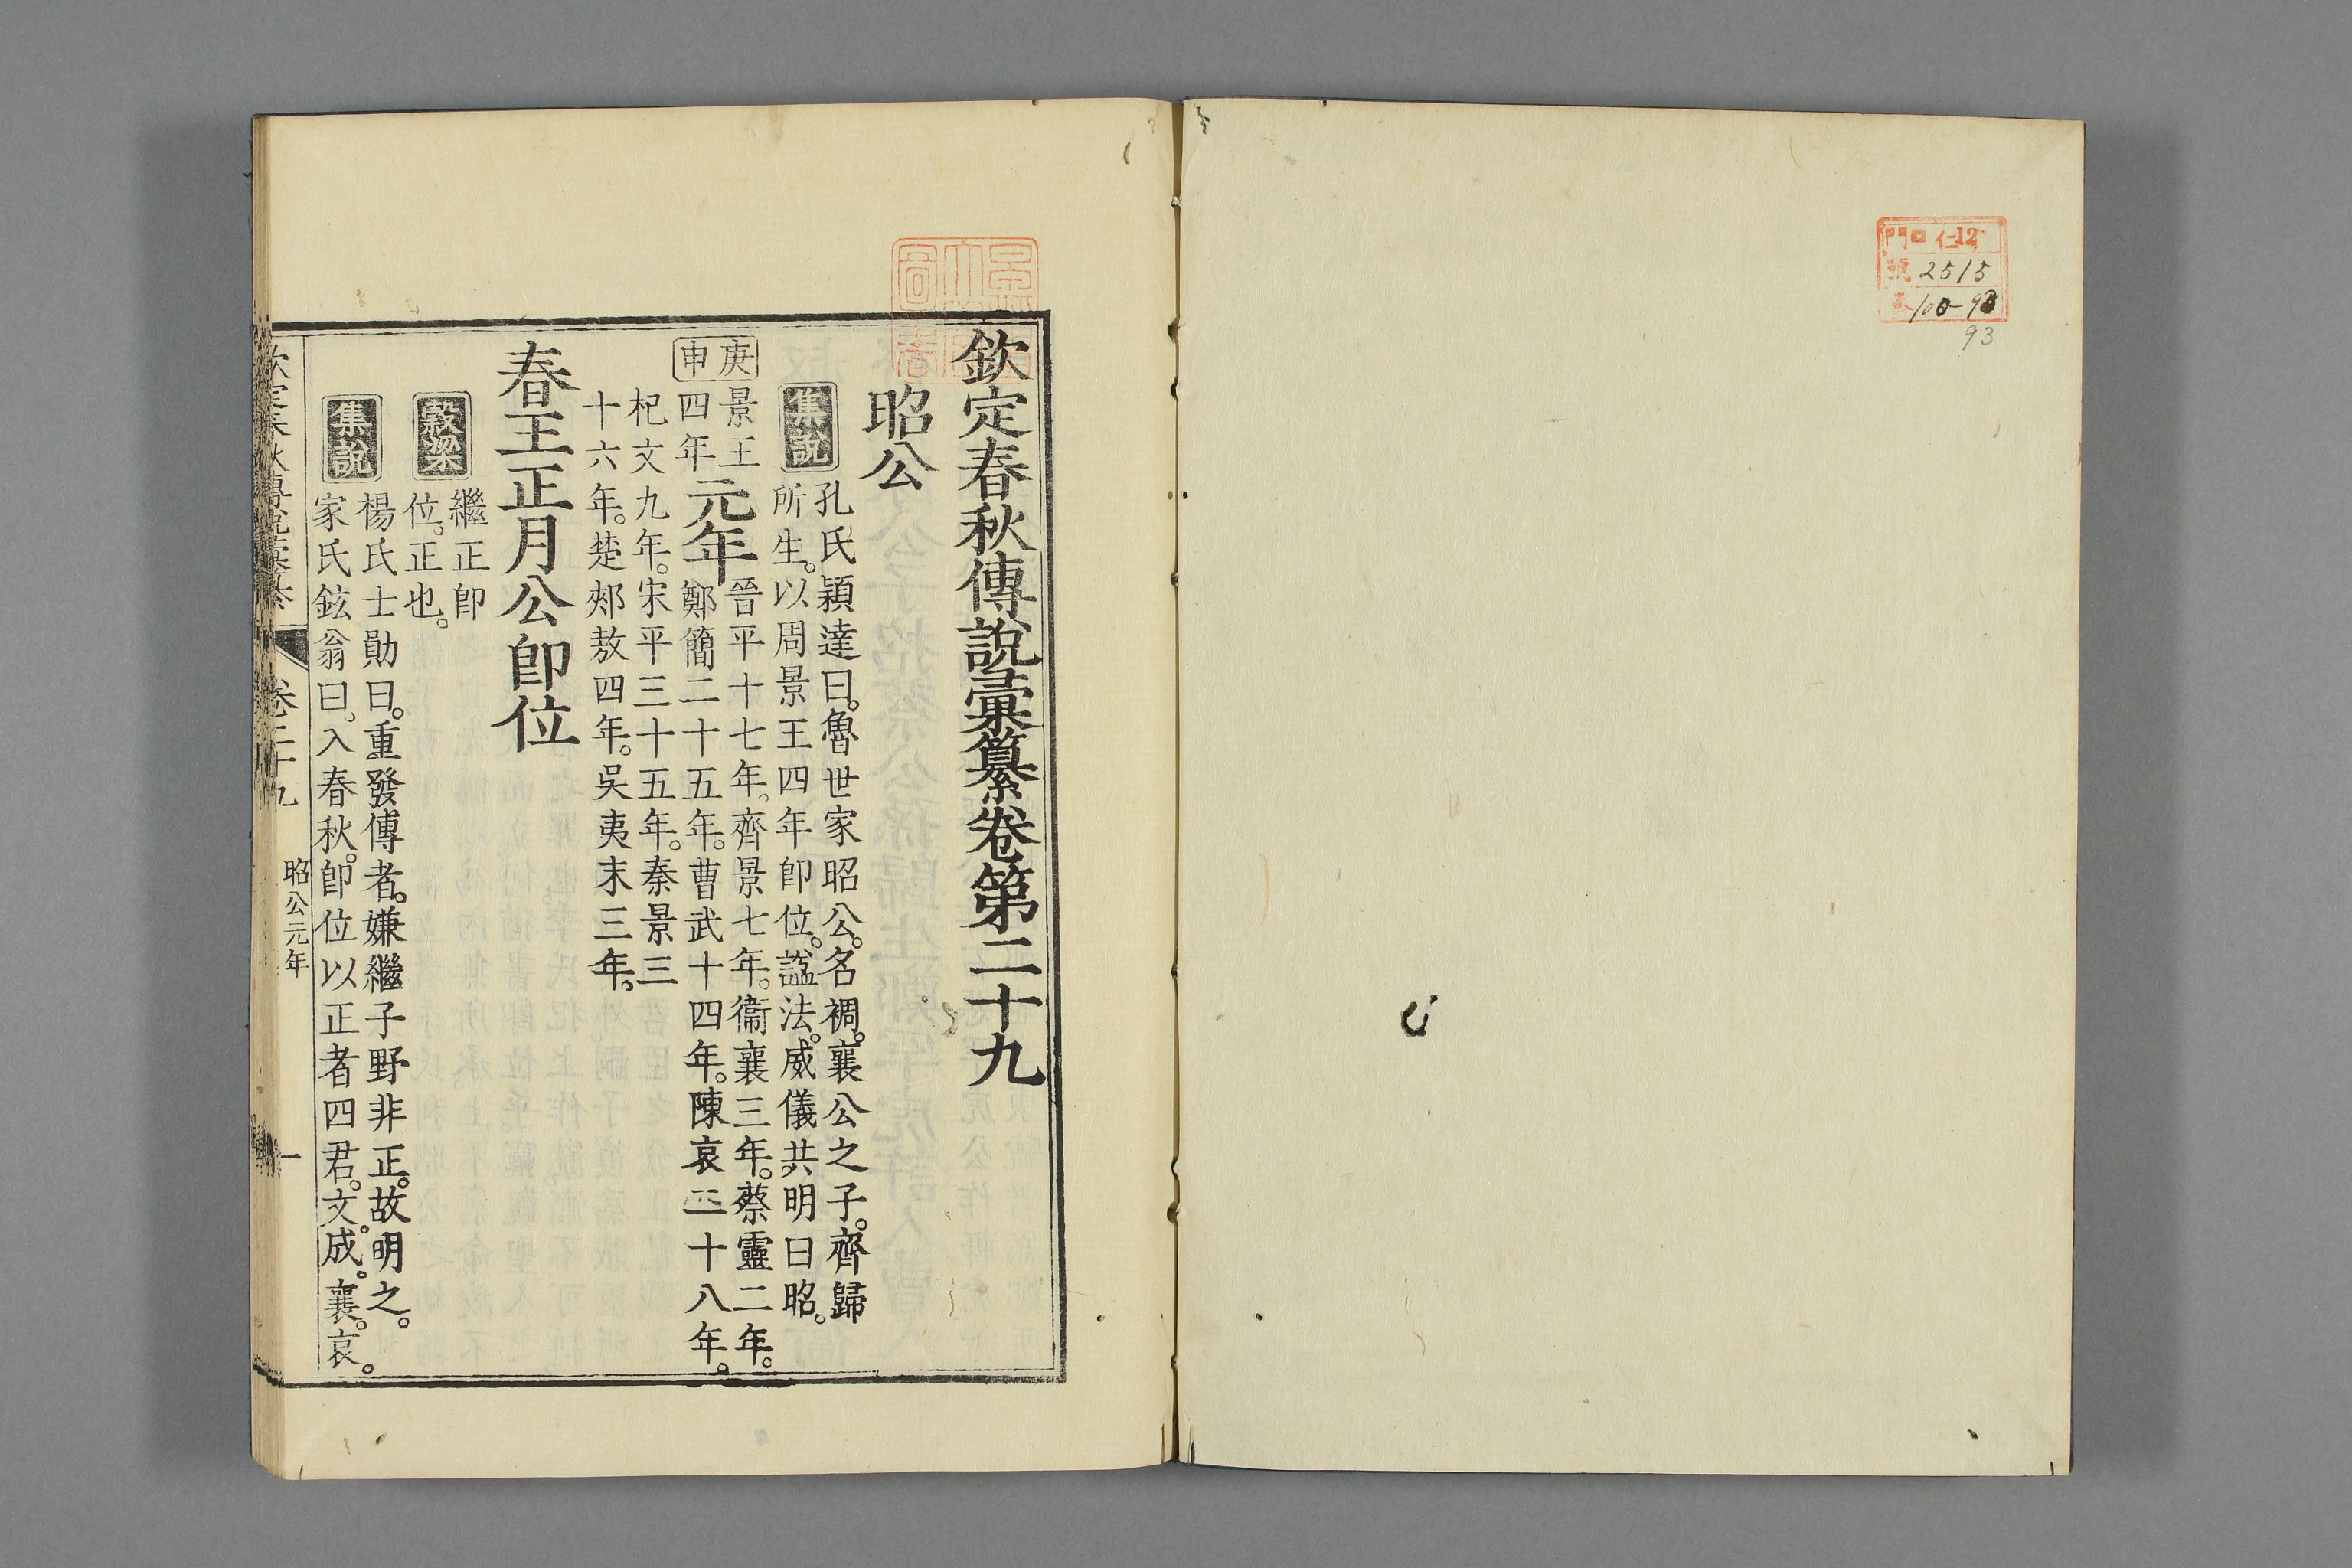 門 口 仁12
號 2515
卷 100-93
93
欽定春秋傳說彙纂卷第二十九
昭公
集說
孔氏穎達曰。魯世家昭公。名裯。襄公之子。齊歸
所生。以周景王四年卽位。謚法。威儀共明曰昭。
庚申
景王
四年
元年
晉平十七年。齊景七年。衞襄三年。蔡靈二年。
鄭簡二十五年。曹武十四年。陳哀三十八年。
杞文九年。宋平三十五年。秦景三
十六年。楚郟敖四年。吳夷末三年。
春王正月公卽位
穀梁
繼正卽
位。正也。
集說
楊氏士勛曰。重發傳者。嫌繼子野非正。故明之。
家氏鉉翁曰。入春秋。卽位以正者四君。文。成。襄。哀。
欽定春秋傳說彙纂
卷二十九
昭公元年
一